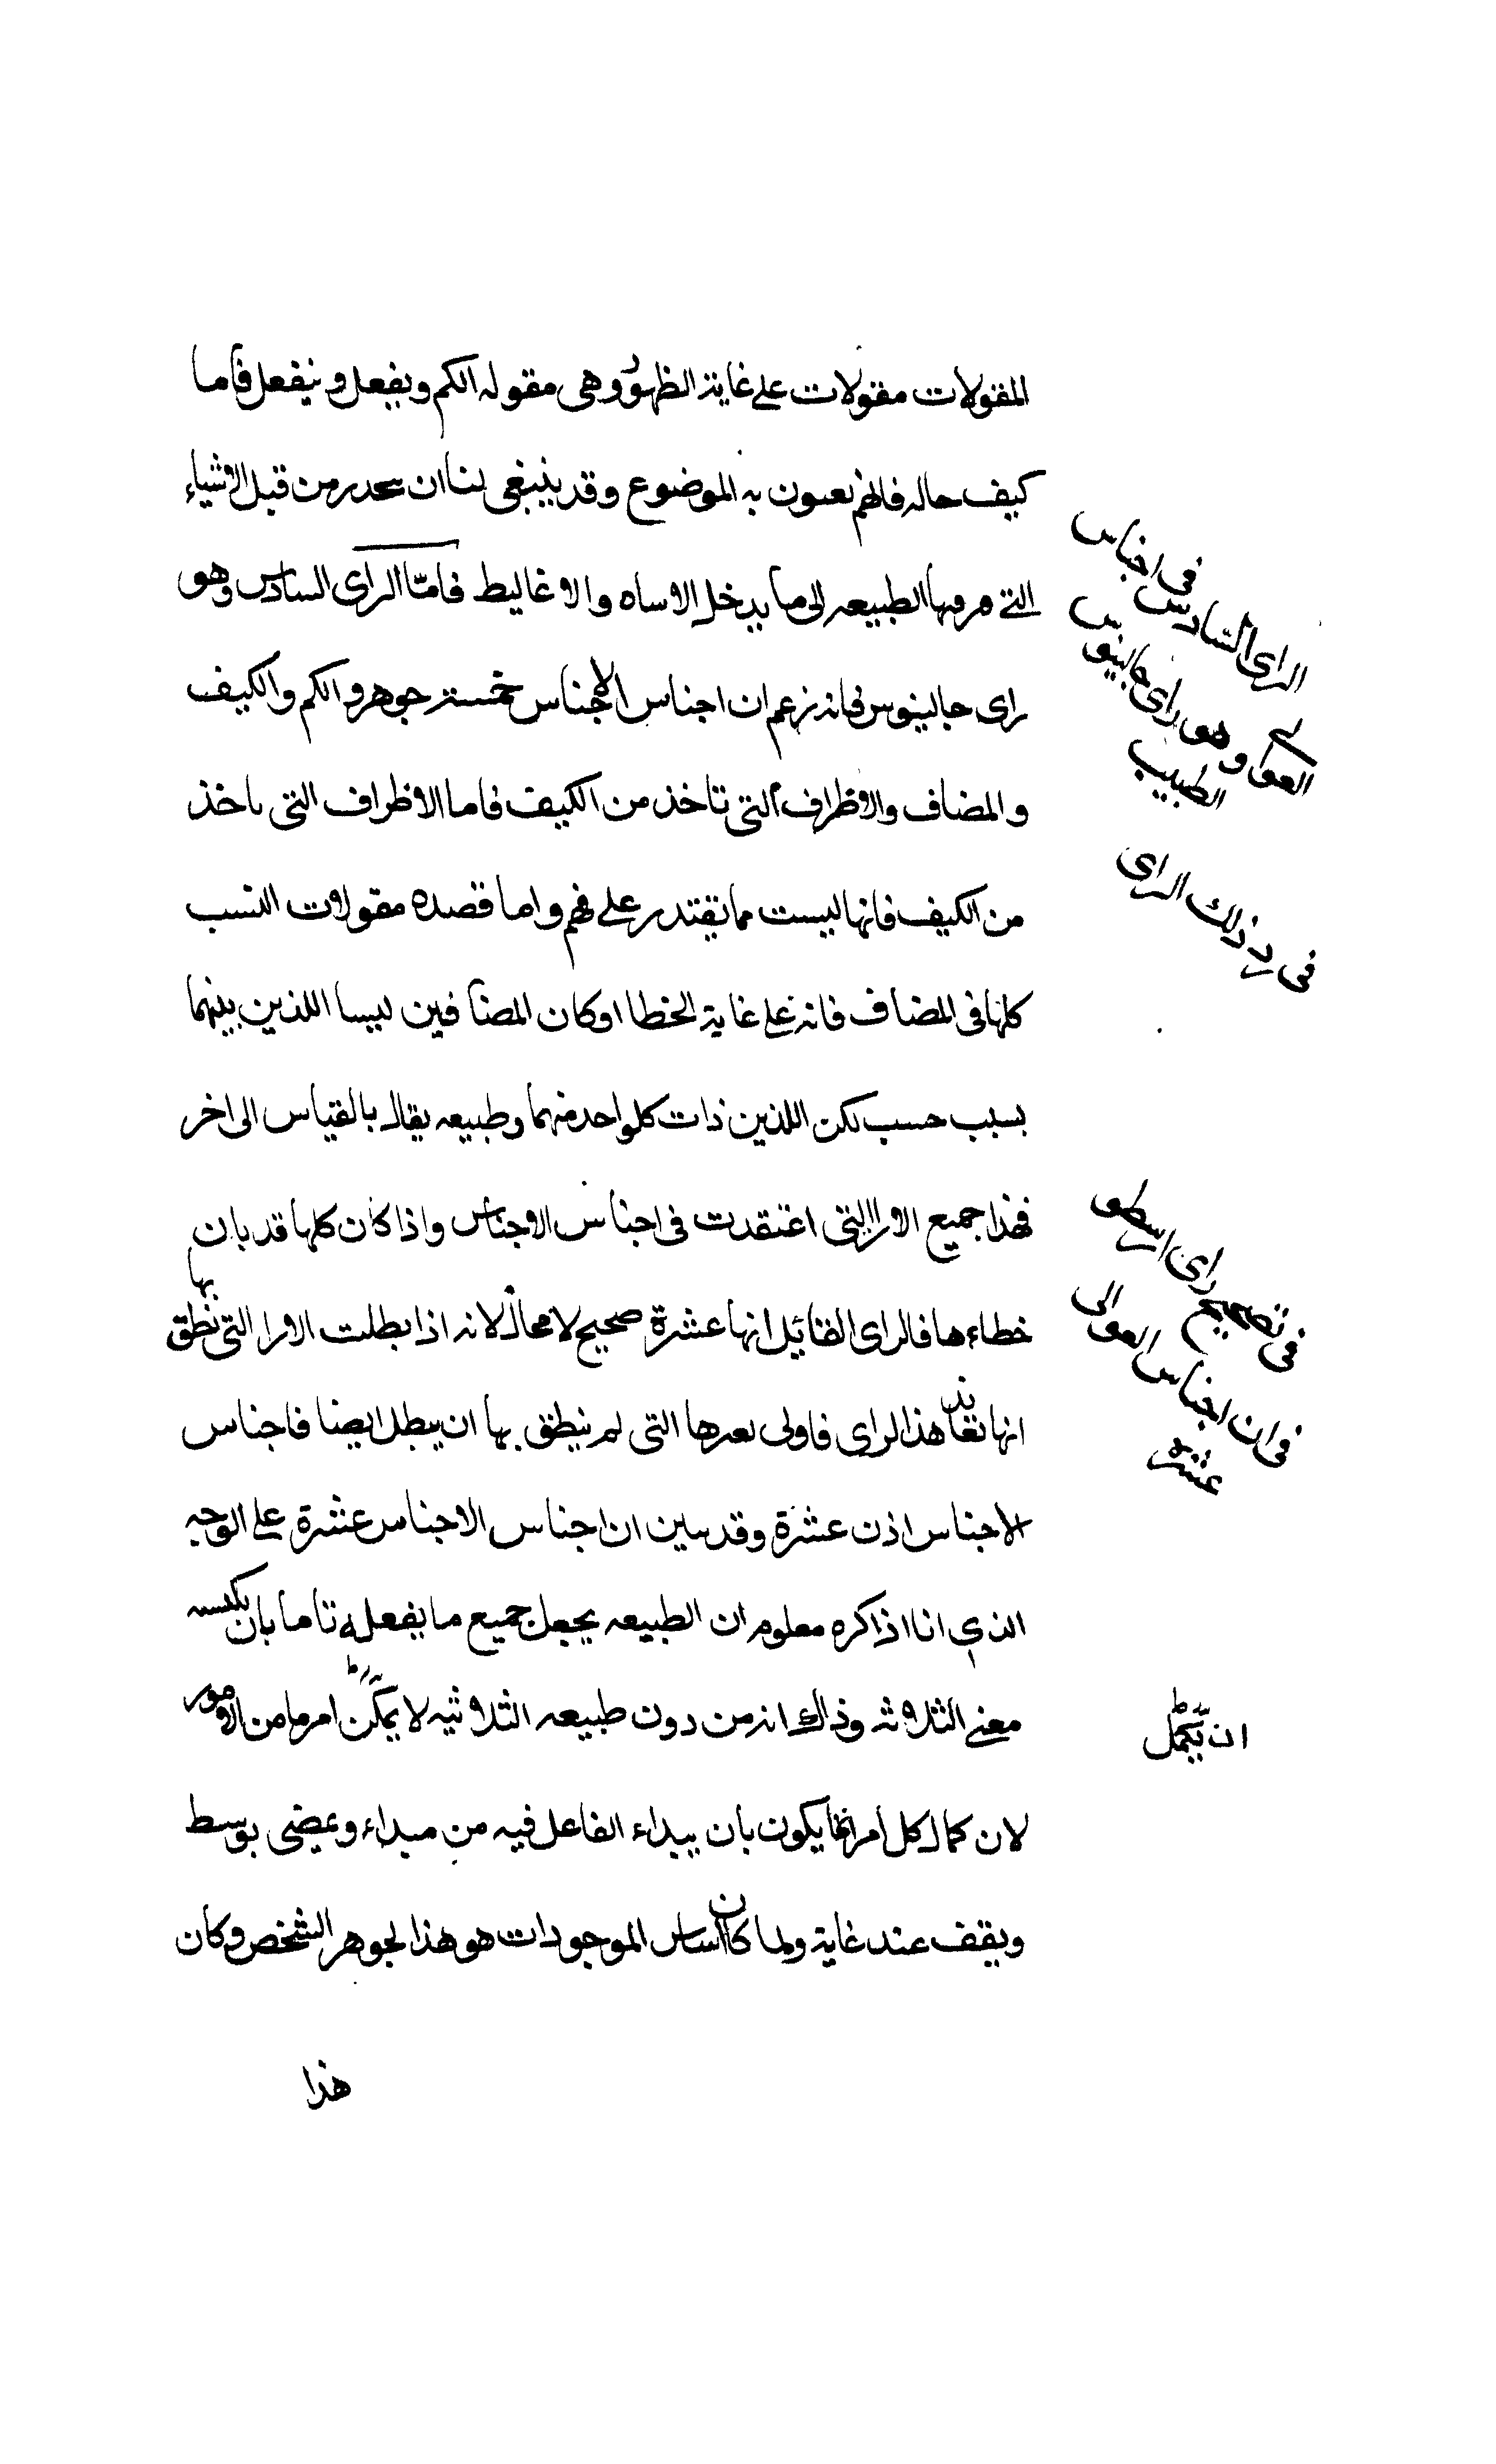 المقولات مقولات على غاية الظهور وهى مقوله الكم ويفعل وينفعل فاما
كيف حاله فانهم يعنون به الموضوع وقد ينبغى لنا ان نحدر من قبل الاشياء
التى الطبيعه الى ما يدخل الاساه والاغاليط فامّا الراى السادس وهو
راى جالينوس فانه زعم ان اجناس الاجناس خمسة جوهر والكم والكيف
والمضاف والاظراف التى تاخذ من الكيف فاما الاظراف التى ىاخذ
من الكيف فانها ليست مما يقتدر على فهم واما قصده مقولات النسب
كلها فى المضاف فانه على غاية الخطا اوكان المضافين ليسا اللذين بينهما
بسبب حسب لكن اللذين ذات كل واحد منهما وطبيعه يقال بالقياس الى اخر
فهذا جميع الارا التى اعتقدت فى اجناس الاجناس واذا كان كلها قد بان
خطاءها فالراى القائل انها عشرة صحيح لا محالة لانه اذا بطلت الارا التى نطق بها
انها تعاند هذا الراى فاولى بعدها التى لم ينطق بها ان يبطل ايضا فاجناس
الاجناس اذن عشرة وقد ىىاين ان اجناس الاجناس عشرة على الوجه
الذي انا اذاكره معلوم ان الطبيعه يجعل جميع ما يفعله تاما بان يكسىه
معنى الثلاثه وذالك انه من دون طبيعه الثلاثيه لا يمكن امر ما من الامور
لان كمال كل امر انما يكون بان يبداء الفاعل فيه من مبداء ويمضى بوسط
ويقف عند غاية ولما كان اساس الموجودات هو هذا لجوهر الشخص وكان
هذا
فى اجناس
الراى السادس
العوالى وهو راى جالينوس
الطبيب
فى رد ذلك الراى
فى تصحيح راى ارسطو
فى ان اجناس العوالى
عشره
ان يكمل